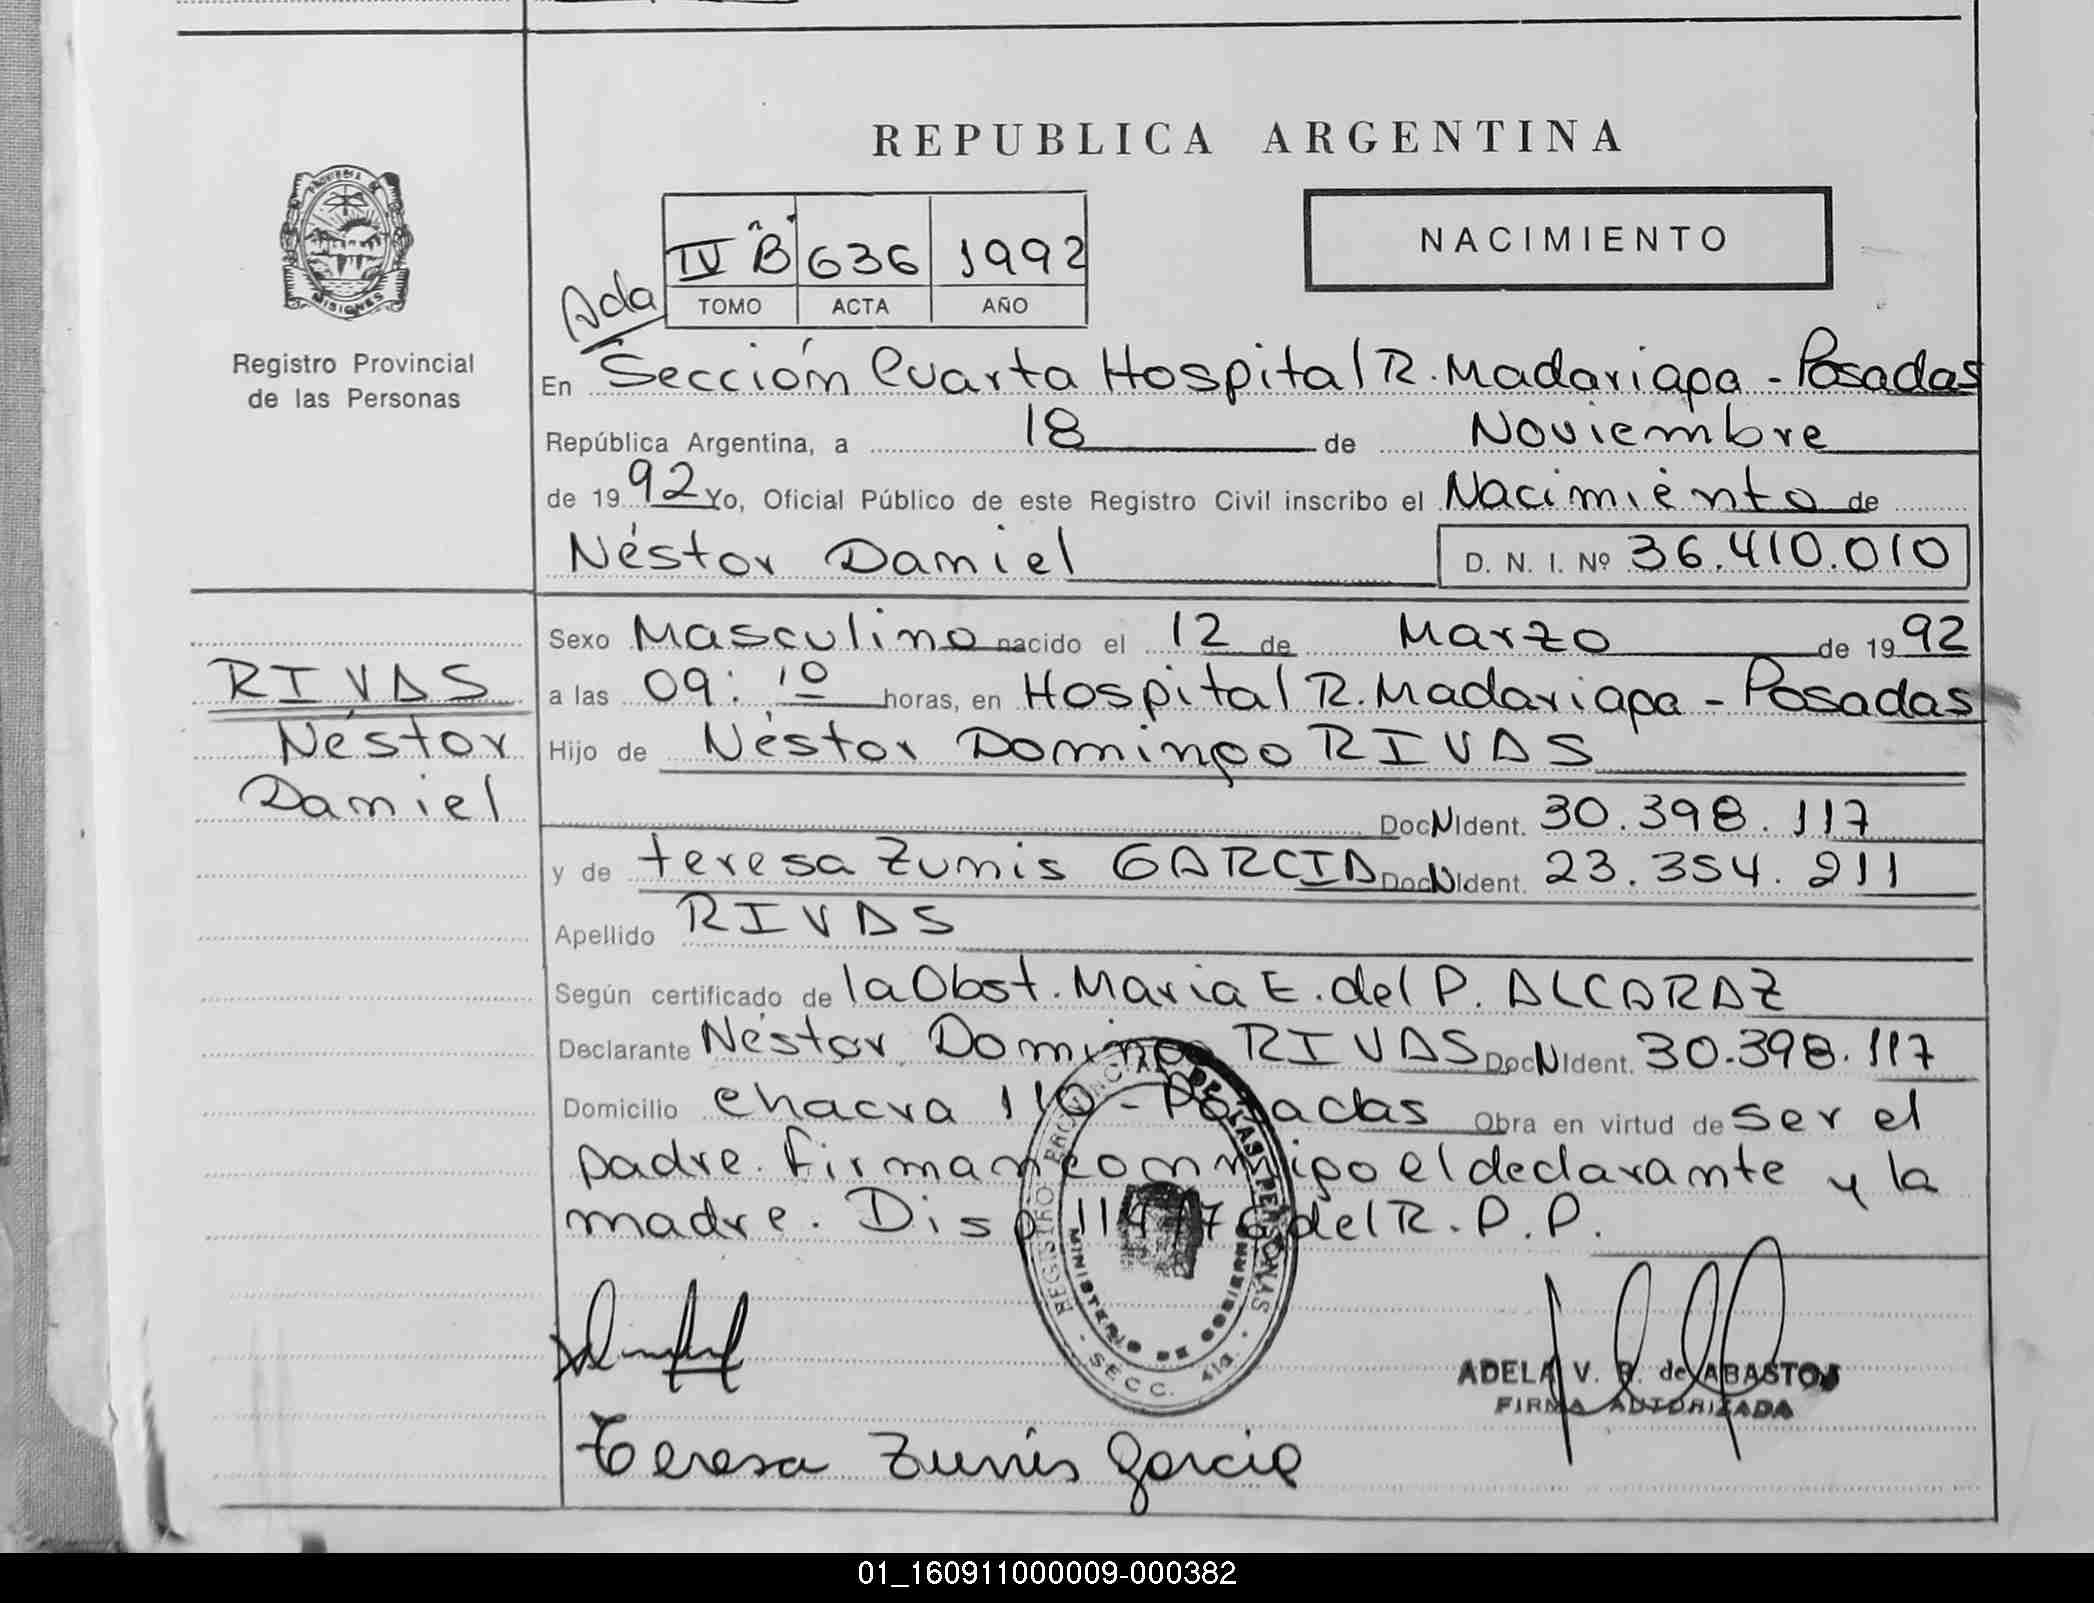 REPUBLICA ARGENTINA
PROVINCIA DE
MISIONES
Registro Provincial
de las Personas
NACIMIENTO
IV "B" 636 1992
TOMO ACTA AÑO
Ada
En Sección Cuarta Hospital R. Madariaga - Posadas
República Argentina, a 18 de Noviembre
de 1992 Yo, Oficial Público de este Registro Civil inscribo el Nacimiento de
Néstor Daniel D. N. I. Nº 36.410.010
RIVAS
Néstor
Daniel
Sexo Masculino nacido el 12 de Marzo de 1992
a las 09:10 horas, en Hospital R. Madariaga - Posadas
Hijo de Néstor Domingo RIVAS
Doc N Ident. 30.398.117
y de teresa Zunis GARCIA Doc N Ident. 23.354.211
Apellido RIVAS
Según certificado de la Obst. Maria E. del P. ALCARAZ
Declarante Néstor Domingo RIVAS Doc N Ident. 30.398.117
Domicilio chacra 110 - Posadas Obra en virtud de ser el
padre. firman conmigo el declarante y la
madre. Disp 114/76 del R.P.P.
REGISTRO PROVINCIAL DE LAS PERSONAS
MINISTERIO DE GOBIERNO
- SECC. 4ta. -
ADELA V. B. de ABASTOS
FIRMA AUTORIZADA
Teresa Zunis Garcia
01_160911000009-000382